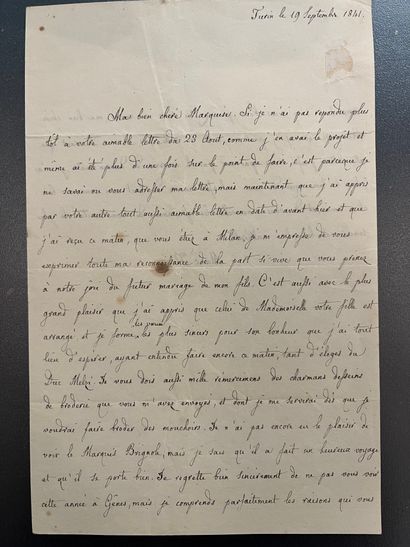 Turin le 19 Septembre 1841.
Ma bien chère Marquise. Si je n'ai pas repondu plus
tôt à votre aimable lettre du 23 Aout, comme j'en avai le projet et
même ai été plus d'une fois sur le point de faire, c'est parceque je
ne savai ou vous adresser ma lettre, mais maintenant que j'ai appris
par votre autre tout aussi aimable lettre en date d'avant hier et que
j'ai reçu ce matin, que vous étiez à Milan, je m'empresse de vous
exprimer toute ma reconnaissance de la part si vive que vous prenez
à notre joie du futur mariage de mon fils. C'est aussi avec le plus
grand plaisir que j'ai appris que celui de Mademoiselle votre fille est
arrangé et je forme les vœux les plus sincers pour son bonheur que j'ai tout
lieu d'esperer, ayant entendu faire encore ce matin, tant d'éloges du
Duc Melzi. Je vous dois aussi mille remercimens des charmans desseins
de broderie que vous m'avez envoyés, et dont je me servirai dès que je
voudrai faire broder des mouchoirs. Je n'ai pas encore eu le plaisir de
voir le Marquis Brignole, mais je sais qu'il a fait un heureux voyage
et qu'il se porte bien. Je regrette bien sincerement de ne pas vous voir
cette année à Gênes, mais je comprends parfaitement les raisons qui vous